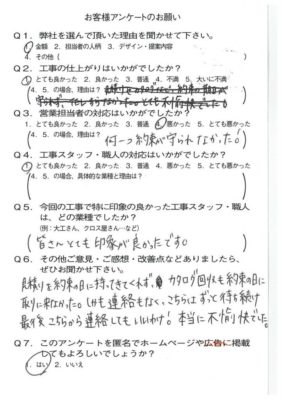 お客様アンケートのお願い
Q1. 弊社を選んで頂いた理由を聞かせて下さい。
1. 金額 2. 担当者の人柄 3. デザイン・提案内容
4. その他(
Q2. 工事の仕上がりはいかがでしたか?
1. とても良かった 2. 良かった 3. 普通 4. 不満 5. 大いに不満
4. 5. の場合、理由は?
Q3. 営業担当者の対応はいかがでしたか?
1. とても良かった 2. 良かった 3. 普通 4. 悪かった 5. とても悪かった
4. 5. の場合、理由は?
何一つ約束が守られなかった!
Q4. 工事スタッフ・職人の対応はいかがでしたか?
1. とても良かった 2. 良かった 3. 普通 4. 悪かった 5. とても悪かった
4. 5. の場合、具体的な業種と理由は?
Q5. 今回の工事で特に印象の良かった工事スタッフ・職人
は、どの業種でしたか?
(例:大工さん、クロス屋さん・・・)
皆さんとても印象が良かったです!
Q6. その他ご意見・ご感想・改善点などありましたら、
ぜひお聞かせ下さい。
見積りを約束の日に持ってきてくれず、カタログ回収も約束の日に
取りに来なかった。しかも連絡もなく、こちらはずっと待ち続け
最後こちらから連絡してもいいわけ!本当に不愉快でした。
Q7. このアンケートを匿名でホームページや広告に掲載
してもよろしいでしょうか?
1. はい 2. いいえ